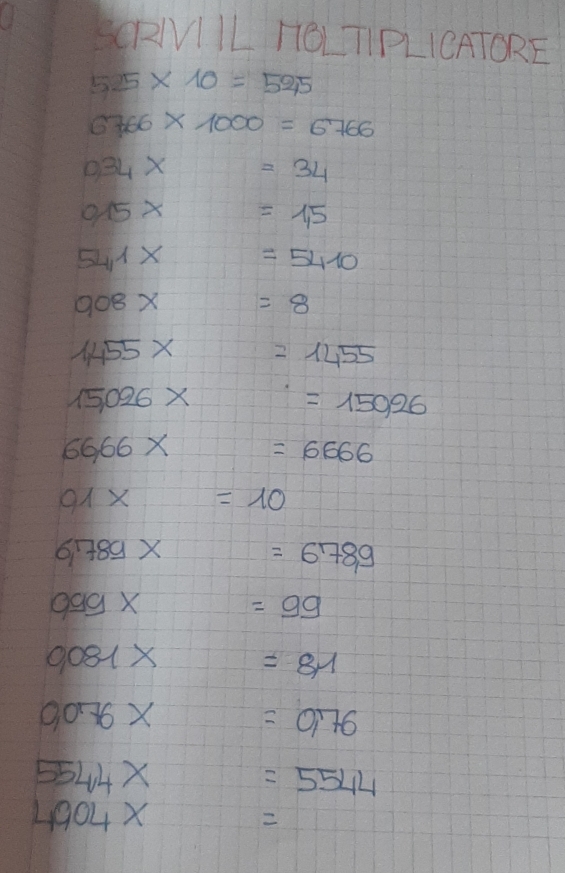 SCRIVI IL MOLTIPLICATORE
5,25 X 10 = 52,5
6,766 X 1000 = 6766
0,34 X = 34
0,15 X = 1,5
54,1 X = 5410
0,08 X = 8
1,455 X = 14,55
15,026 X = 150,26
66,66 X = 6666
0,1 X = 10
6,789 X = 678,9
0,99 X = 99
0,081 X = 8,1
0,076 X = 0,76
554,4 X = 5544
4,904 X =